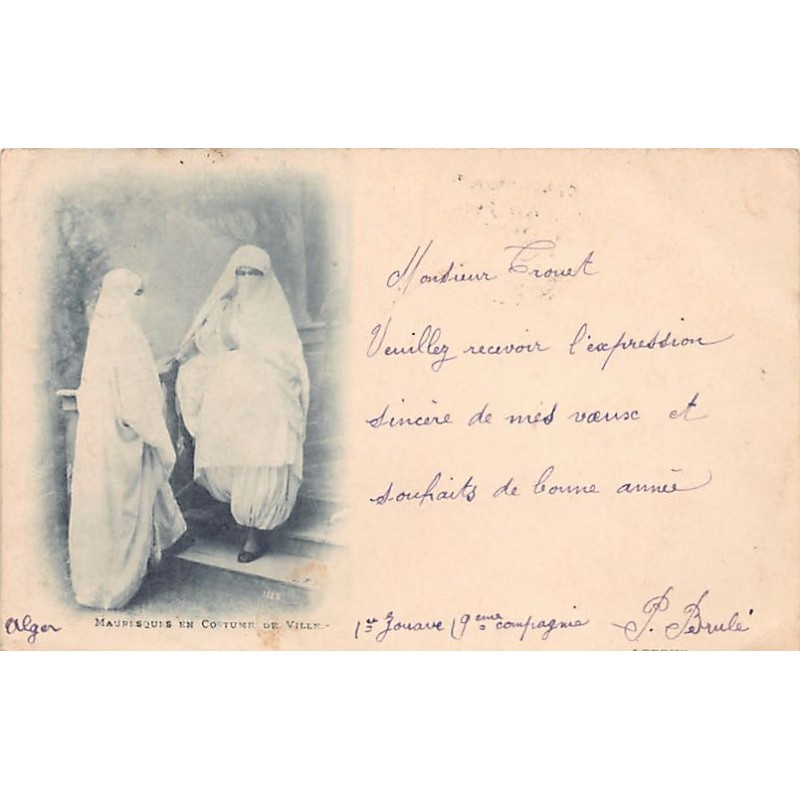 Monsieur Trouet
Veuillez recevoir l'expression
sincère de mes vœux et
souhaits de bonne année
Alger
MAURESQUES EN COSTUME DE VILLE.-
1er Zouave 19eme compagnie
P. Brulé